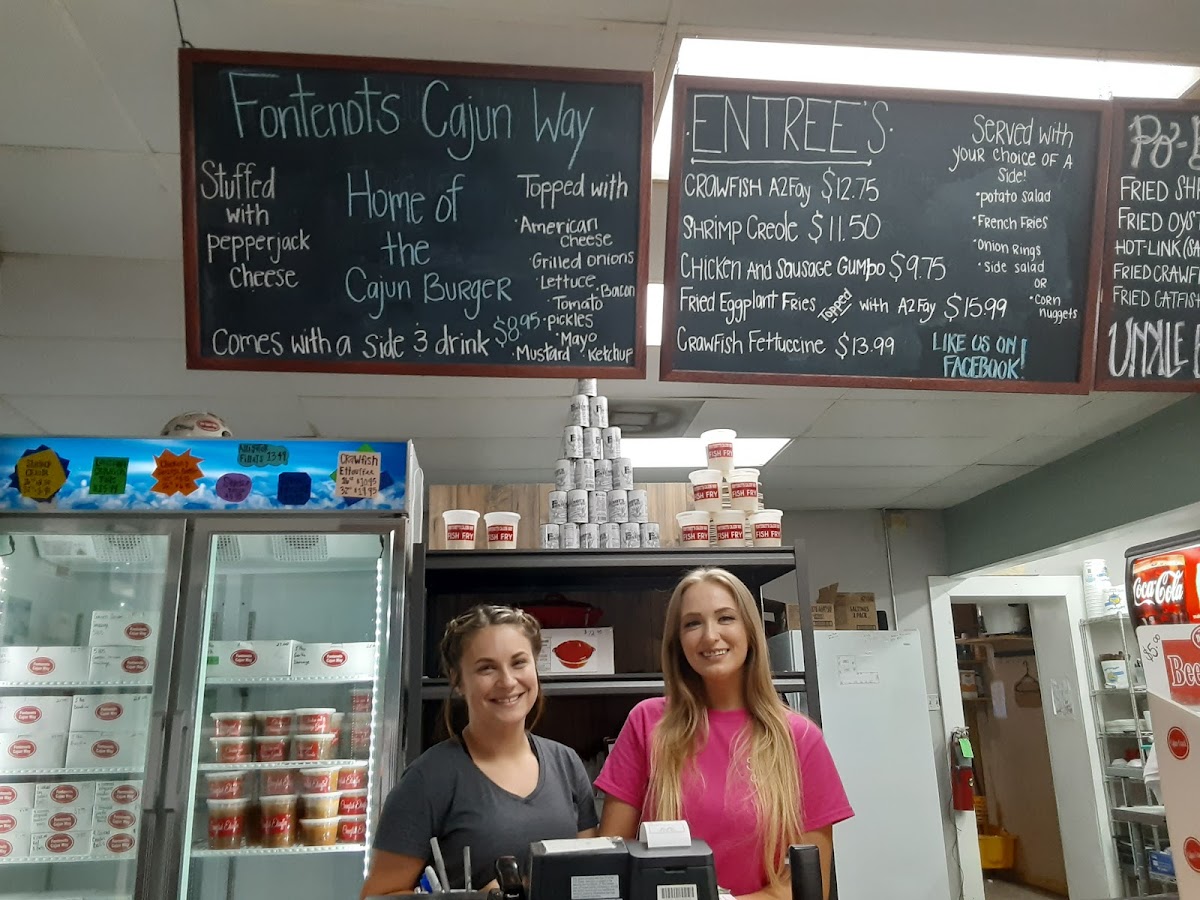 Fontenots Cajun Way
Stuffed
with
pepperjack
Cheese
Home of
the
Cajun Burger
Topped with
·American
Cheese
·Grilled onions
·Lettuce
·Bacon
·Tomato
·pickles
·Mayo
·Mustard ·Ketchup
Comes with a side & drink $8.95
·ENTREE'S·
CRawfish A2Fay $12.75
Shrimp Creole $11.50
Chicken And Sausage Gumbo $9.75
Fried Eggplant Fries Topped with A2Fay $15.99
Crawfish Fettuccine $13.99
Served with
your choice of A
Side!
·potato salad
·French Fries
·Onion Rings
·Side salad
OR
·Corn
nuggets
LIKE US ON
FACEBOOK!
Po-
FRIED SH
FRIED OYS
HOT-LINK (SA
FRIED CRAWF
FRIED CATFIS
UNKLE
13.99
CRawfish
Etouffee
FISH FRY
FISH FRY
FISH FRY
FISH FRY
FISH FRY
FISH FRY
FISH FRY
FISH FRY
Coca-Cola
Bee